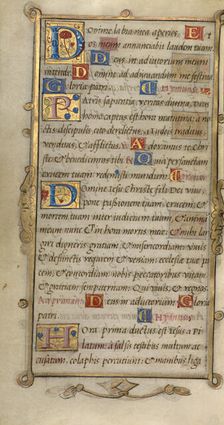 Domine labia mea aperies. Et
os meum annunciabit laudem tuam
Deus in adiutorium meum
intende. Domine ad adiuvandum me festina
Gloria patri.
Patris sapientia, veritas divina, deus
homo captus est hora matutina: a no
tis discipulis cito derelictus, a iudeis
venditus, & afflictus. Adoramus te Christe
& benedicimus tibi. Quia per sanctam
crucem tuam redemisti mundum.
Domine Iesu Christe fili Dei vivi
pone passionem, crucem, &
mortem tuam inter iudicium tuum, & anima
meam nunc & in hora mortis meæ: & mihi
largiri digneris gratiam, & misericordiam: vivis
& defunctis requiem & veniam: ecclesiæ tuæ pa
cem, & concordiam: nobis peccatoribus vitam
& gloriam sempiternam. Qui vivis & regnas
Deus in adiutorium Gloria
patri.
Hora prima ductus est Iesus a Pi
latum: a falsis testibus multum ac
cusatum. colaphis percutiunt: & manibus liga